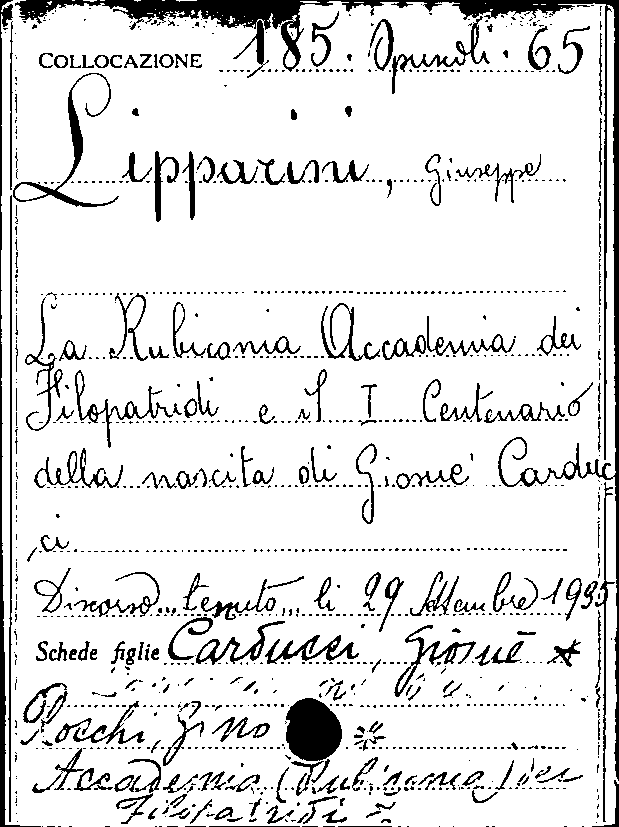 COLLOCAZIONE 185. Opuscoli. 65
Lipparini, Giuseppe
La Rubiconia Accademia dei
Filopatridi e il I Centenario
della nascita di Giosue' Carduc=
ci
Discorso tenuto li 29 Settembre 1935
Schede figlie Carducci, Giosuè *
Rocchi, Gino *
Accademia (Rubiconia) dei
Filopatridi =